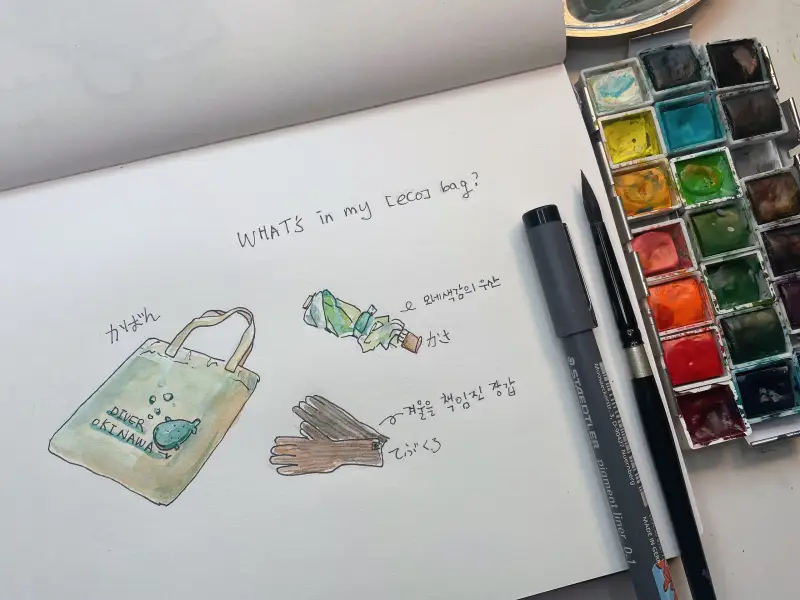 WHAT'S in my [eco] bag?
かばん
모네색감의 우산
かさ
DIVER
OKINAWA
겨울을 책임진 장갑
てぶくろ
STAEDTLER
pigment liner 0.1
MADE IN GER